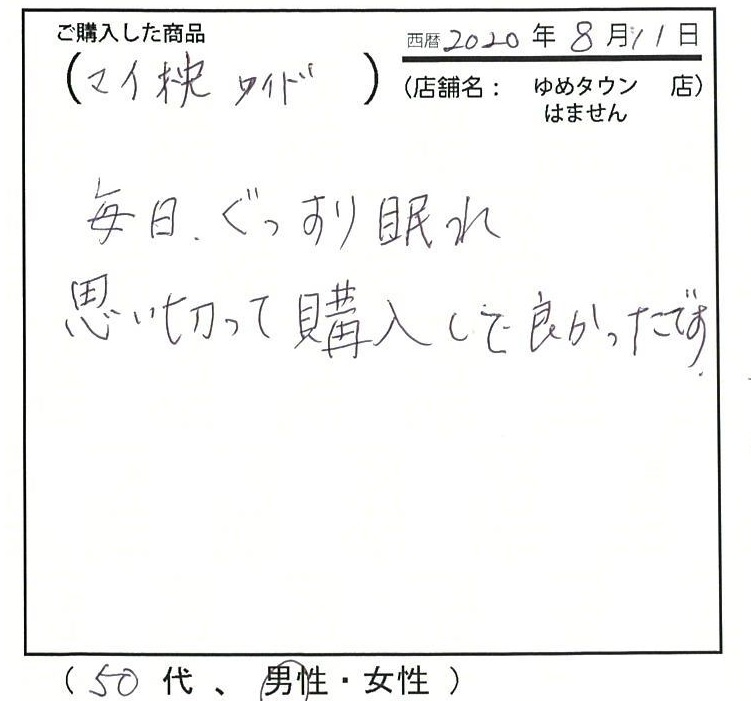 ご購入した商品
西暦2020年8月11日
(マイ枕 ワイド)
(店舗名： ゆめタウン 店)
はません
毎日、ぐっすり眠れ
思い切って購入して良かったです.
(50代、男性・女性)